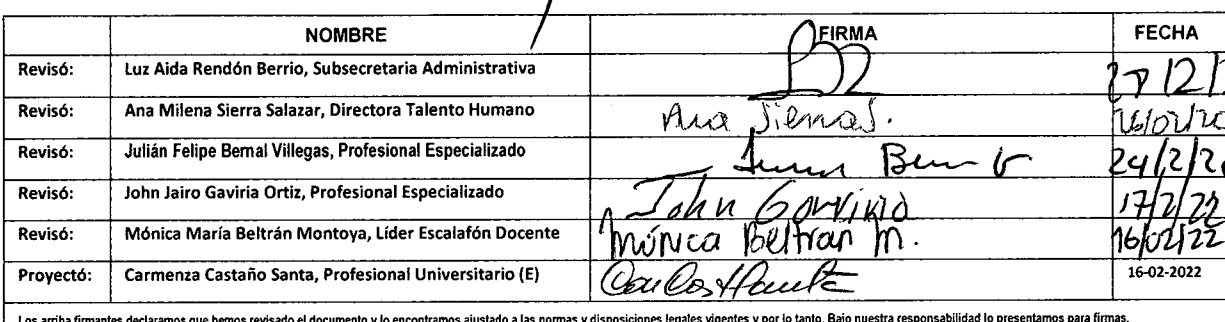 NOMBRE FIRMA FECHA
Revisó: Luz Aida Rendón Berrio, Subsecretaria Administrativa
Revisó: Ana Milena Sierra Salazar, Directora Talento Humano Ana Sierra S.
Revisó: Julián Felipe Bernal Villegas, Profesional Especializado 24/2/2
Revisó: John Jairo Gaviria Ortiz, Profesional Especializado John Gaviria 17/2/22
Revisó: Mónica María Beltrán Montoya, Líder Escalafón Docente Mónica Beltran M. 16/02/22
Proyectó: Carmenza Castaño Santa, Profesional Universitario (E) 16-02-2022
Los arriba firmantes declaramos que hemos revisado el documento y lo encontramos ajustado a las normas y disposiciones legales vigentes y por lo tanto, Bajo nuestra responsabilidad lo presentamos para firmas.